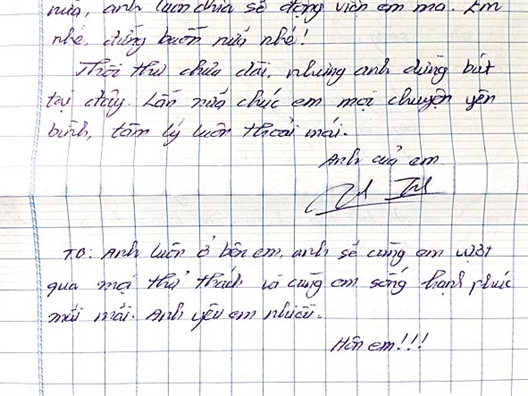 nữa, anh luôn chia sẻ động viên em mà. Em
nhé, đừng buồn nữa nhé!
Thôi thư chưa dài, nhưng anh dừng bút
tại đây. Lần nữa chúc em mọi chuyện yên
bình, tâm lý luôn thoải mái.
Anh của em
T.B: Anh luôn ở bên em, anh sẽ cùng em vượt
qua mọi thử thách và cùng em sống hạnh phúc
mãi mãi. Anh yêu em nhiều.
Hôn em!!!